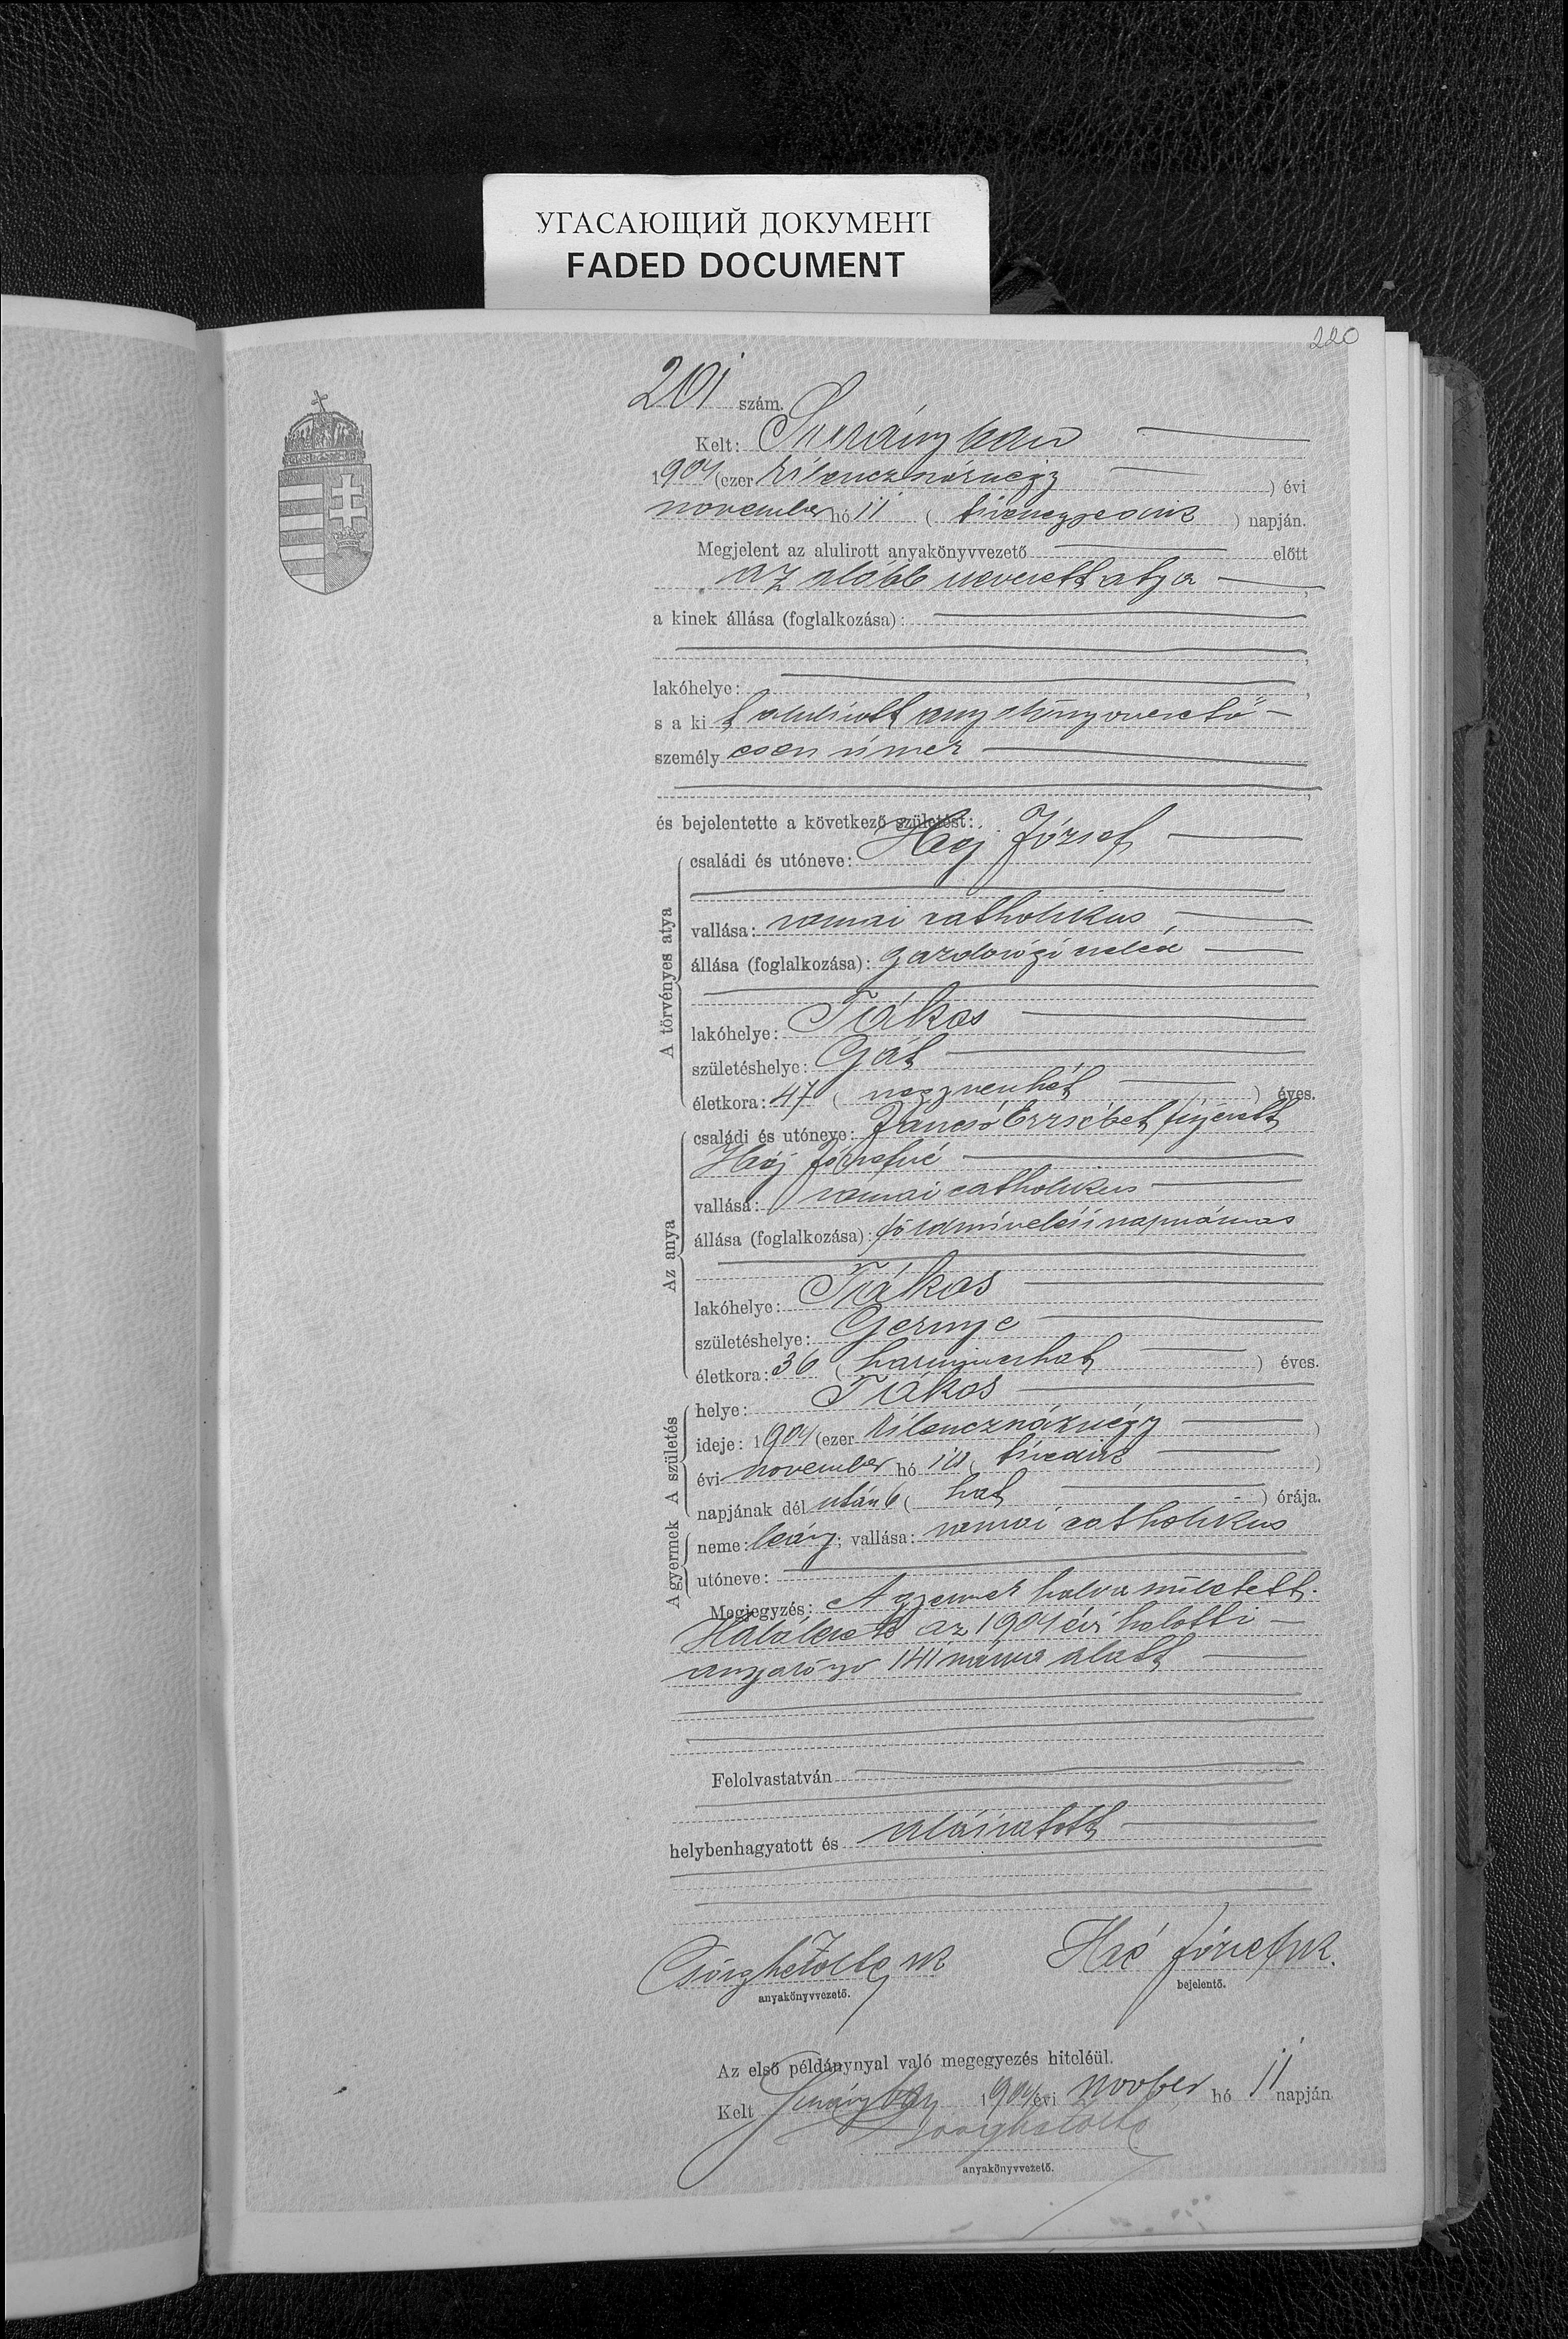 УГАСАЮЩИЙ ДОКУМЕНТ
FADED DOCUMENT
220
201 szám.
Kelt:
1904 (ezer kilenczszáznégy ) évi
november hó 11 ( tizenegyedik ) napján.
Megjelent az alulirott anyakönyvvezető előtt
az alább nevezett atya ,
a kinek állása (foglalkozása):
,
lakóhelye: ,
s a ki t alulirott anyakönyvvezető
személy esen ismer
,
és bejelentette a következő születést:
A törvényes atya
családi és utóneve: Haj József
vallása: romai catholikus
állása (foglalkozása): gazdasági cseléd
lakóhelye: Rákos
születéshelye: Gát
életkora: 47 ( negyvenhét ) éves.
Az anya
családi és utóneve: Jancsó Erzsébet férjezett
Haj Józsefné
vallása: romai catholikus
állása (foglalkozása): földmivelési napszámos
lakóhelye: Rákos
születéshelye: Gernye
életkora: 36 ( harminczhat ) éves.
A születés
helye: Rákos
ideje: 1904 (ezer kilenczszáznégy )
évi november hó 10 ( tizedik )
napjának dél után 6 ( hat ) órája.
A gyermek
neme: leány; vallása: romai catholikus
utóneve:
Megjegyzés: A gyermek halva született.
Haláleset az 1904 évi halotti
anyakönyv 141 száma alatt
Felolvastatván
helybenhagyatott és aláiratott
sk
anyakönyvvezető.
József sk.
bejelentő.
Az első példánynyal való megegyezés hiteléül.
Kelt 1904 évi novber hó 11 napján
anyakönyvvezető.